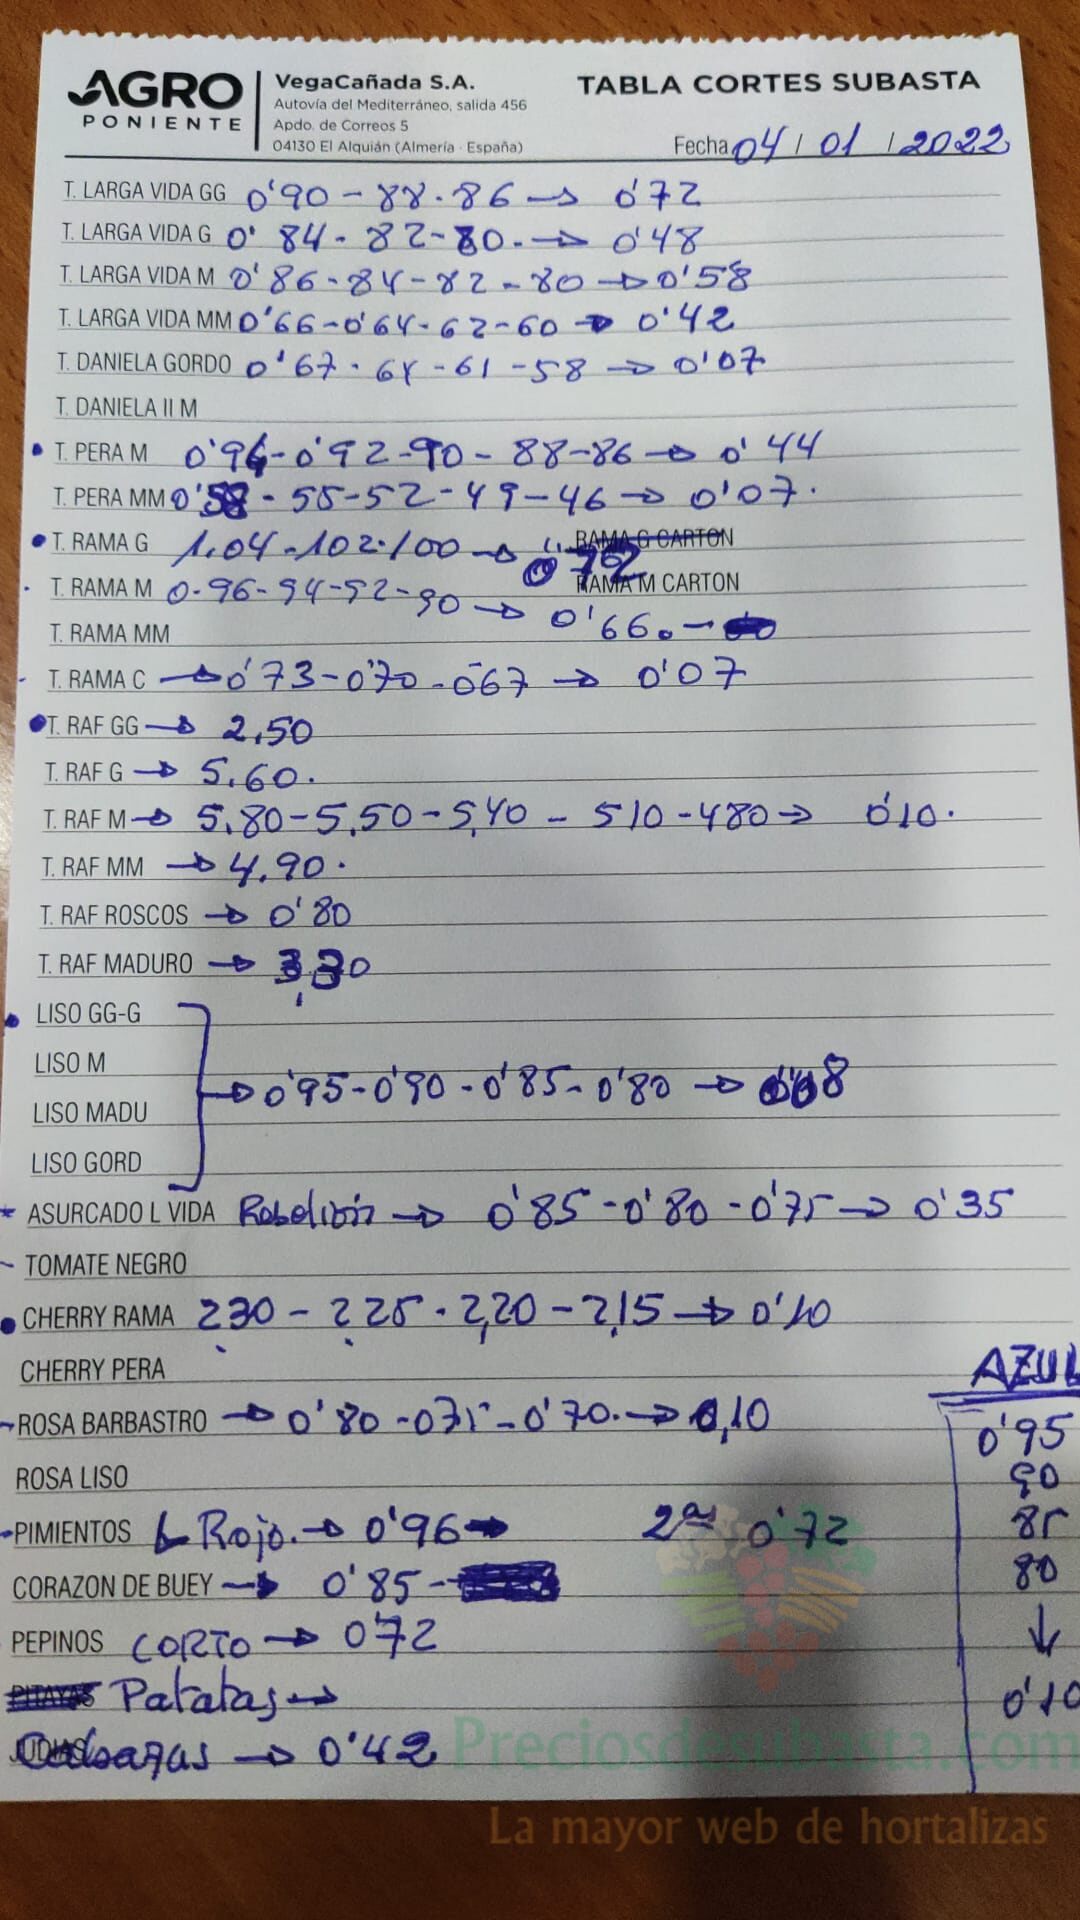 AGRO PONIENTE
VegaCañada S.A.
Autovía del Mediterráneo, salida 456
Apdo. de Correos 5
04130 El Alquián (Almería - España)
TABLA CORTES SUBASTA
Fecha 04 / 01 / 2022
T. LARGA VIDA GG 0'90 - 88 - 86 → 0'72
T. LARGA VIDA G 0' 84 - 82 - 80. → 0'48
T. LARGA VIDA M 0'86 - 84 - 82 - 80 → 0'58
T. LARGA VIDA MM 0'66 - 0'64 - 62 - 60 → 0'42
T. DANIELA GORDO 0'67 - 64 - 61 - 58 → 0'07
T. DANIELA II M
T. PERA M 0'94 - 0'92 - 90 - 88 - 86 → 0'44
T. PERA MM 0'58 - 55 - 52 - 49 - 46 → 0'07.
T. RAMA G 1.04 - 102 - 100 → 0'72 RAMA G CARTON
T. RAMA M 0-96 - 94 - 92 - 90 → 0'66. RAMA M CARTON
T. RAMA MM
T. RAMA C → 0'73 - 0'70 - 067 → 0'07
T. RAF GG → 2,50
T. RAF G → 5.60.
T. RAF M → 5.80 - 5,50 - 5,40 - 510 - 480 → 0'10.
T. RAF MM → 4.90.
T. RAF ROSCOS → 0'80
T. RAF MADURO → 3,30
LISO GG-G
LISO M
→ 0'95 - 0'90 - 0'85 - 0'80 →
LISO MADU
LISO GORD
ASURCADO L VIDA Rebelión → 0'85 - 0'80 - 0'75 → 0'35
TOMATE NEGRO
CHERRY RAMA 2,30 - 2,25 - 2,20 - 2,15 → 0'10
CHERRY PERA
ROSA BARBASTRO → 0'80 - 075 - 0'70. → 0,10
ROSA LISO
PIMIENTOS L Rojo. → 0'96 → 2ªs 0'72
CORAZON DE BUEY → 0'85 -
PEPINOS CORTO → 0'72
PITAYAS Patatas →
JUDIAS Calbazas → 0'42
AZUL
0'95
90
85
80
↓
0'10
Preciosdesubasta.com
La mayor web de hortalizas